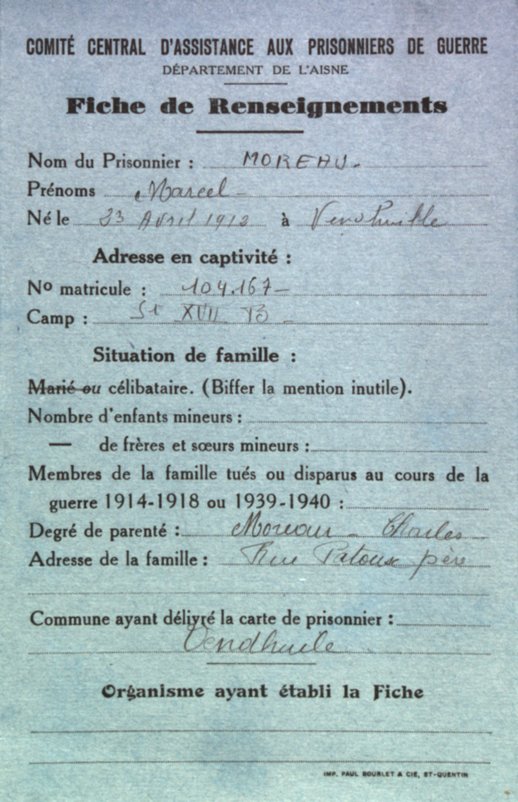 COMITÉ CENTRAL D'ASSISTANCE AUX PRISONNIERS DE GUERRE
DÉPARTEMENT DE L'AISNE
Fiche de Renseignements
Nom du Prisonnier : MOREAU
Prénoms Marcel
Né le 23 Avril 1912 à
Adresse en captivité :
No matricule : 104.167
Camp : St XVII B
Situation de famille :
Marié ou célibataire. (Biffer la mention inutile).
Nombre d'enfants mineurs :
— de frères et sœurs mineurs :
Membres de la famille tués ou disparus au cours de la
guerre 1914-1918 ou 1939-1940 :
Degré de parenté : Moreau Charles
Adresse de la famille : Rue Patoux père
Commune ayant délivré la carte de prisonnier :
Vendhuile
Organisme ayant établi la Fiche
IMP. PAUL BOURLET & CIE, ST-QUENTIN